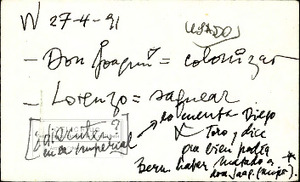 W 27-4-91
USADO
- Don Joaquín = colonizar
- Lorenzo = saquear
discuten?
en la imperial
lo menta Diego
Toro, y dice
que bien podía
haber matado a
don Joaq. (amigo).